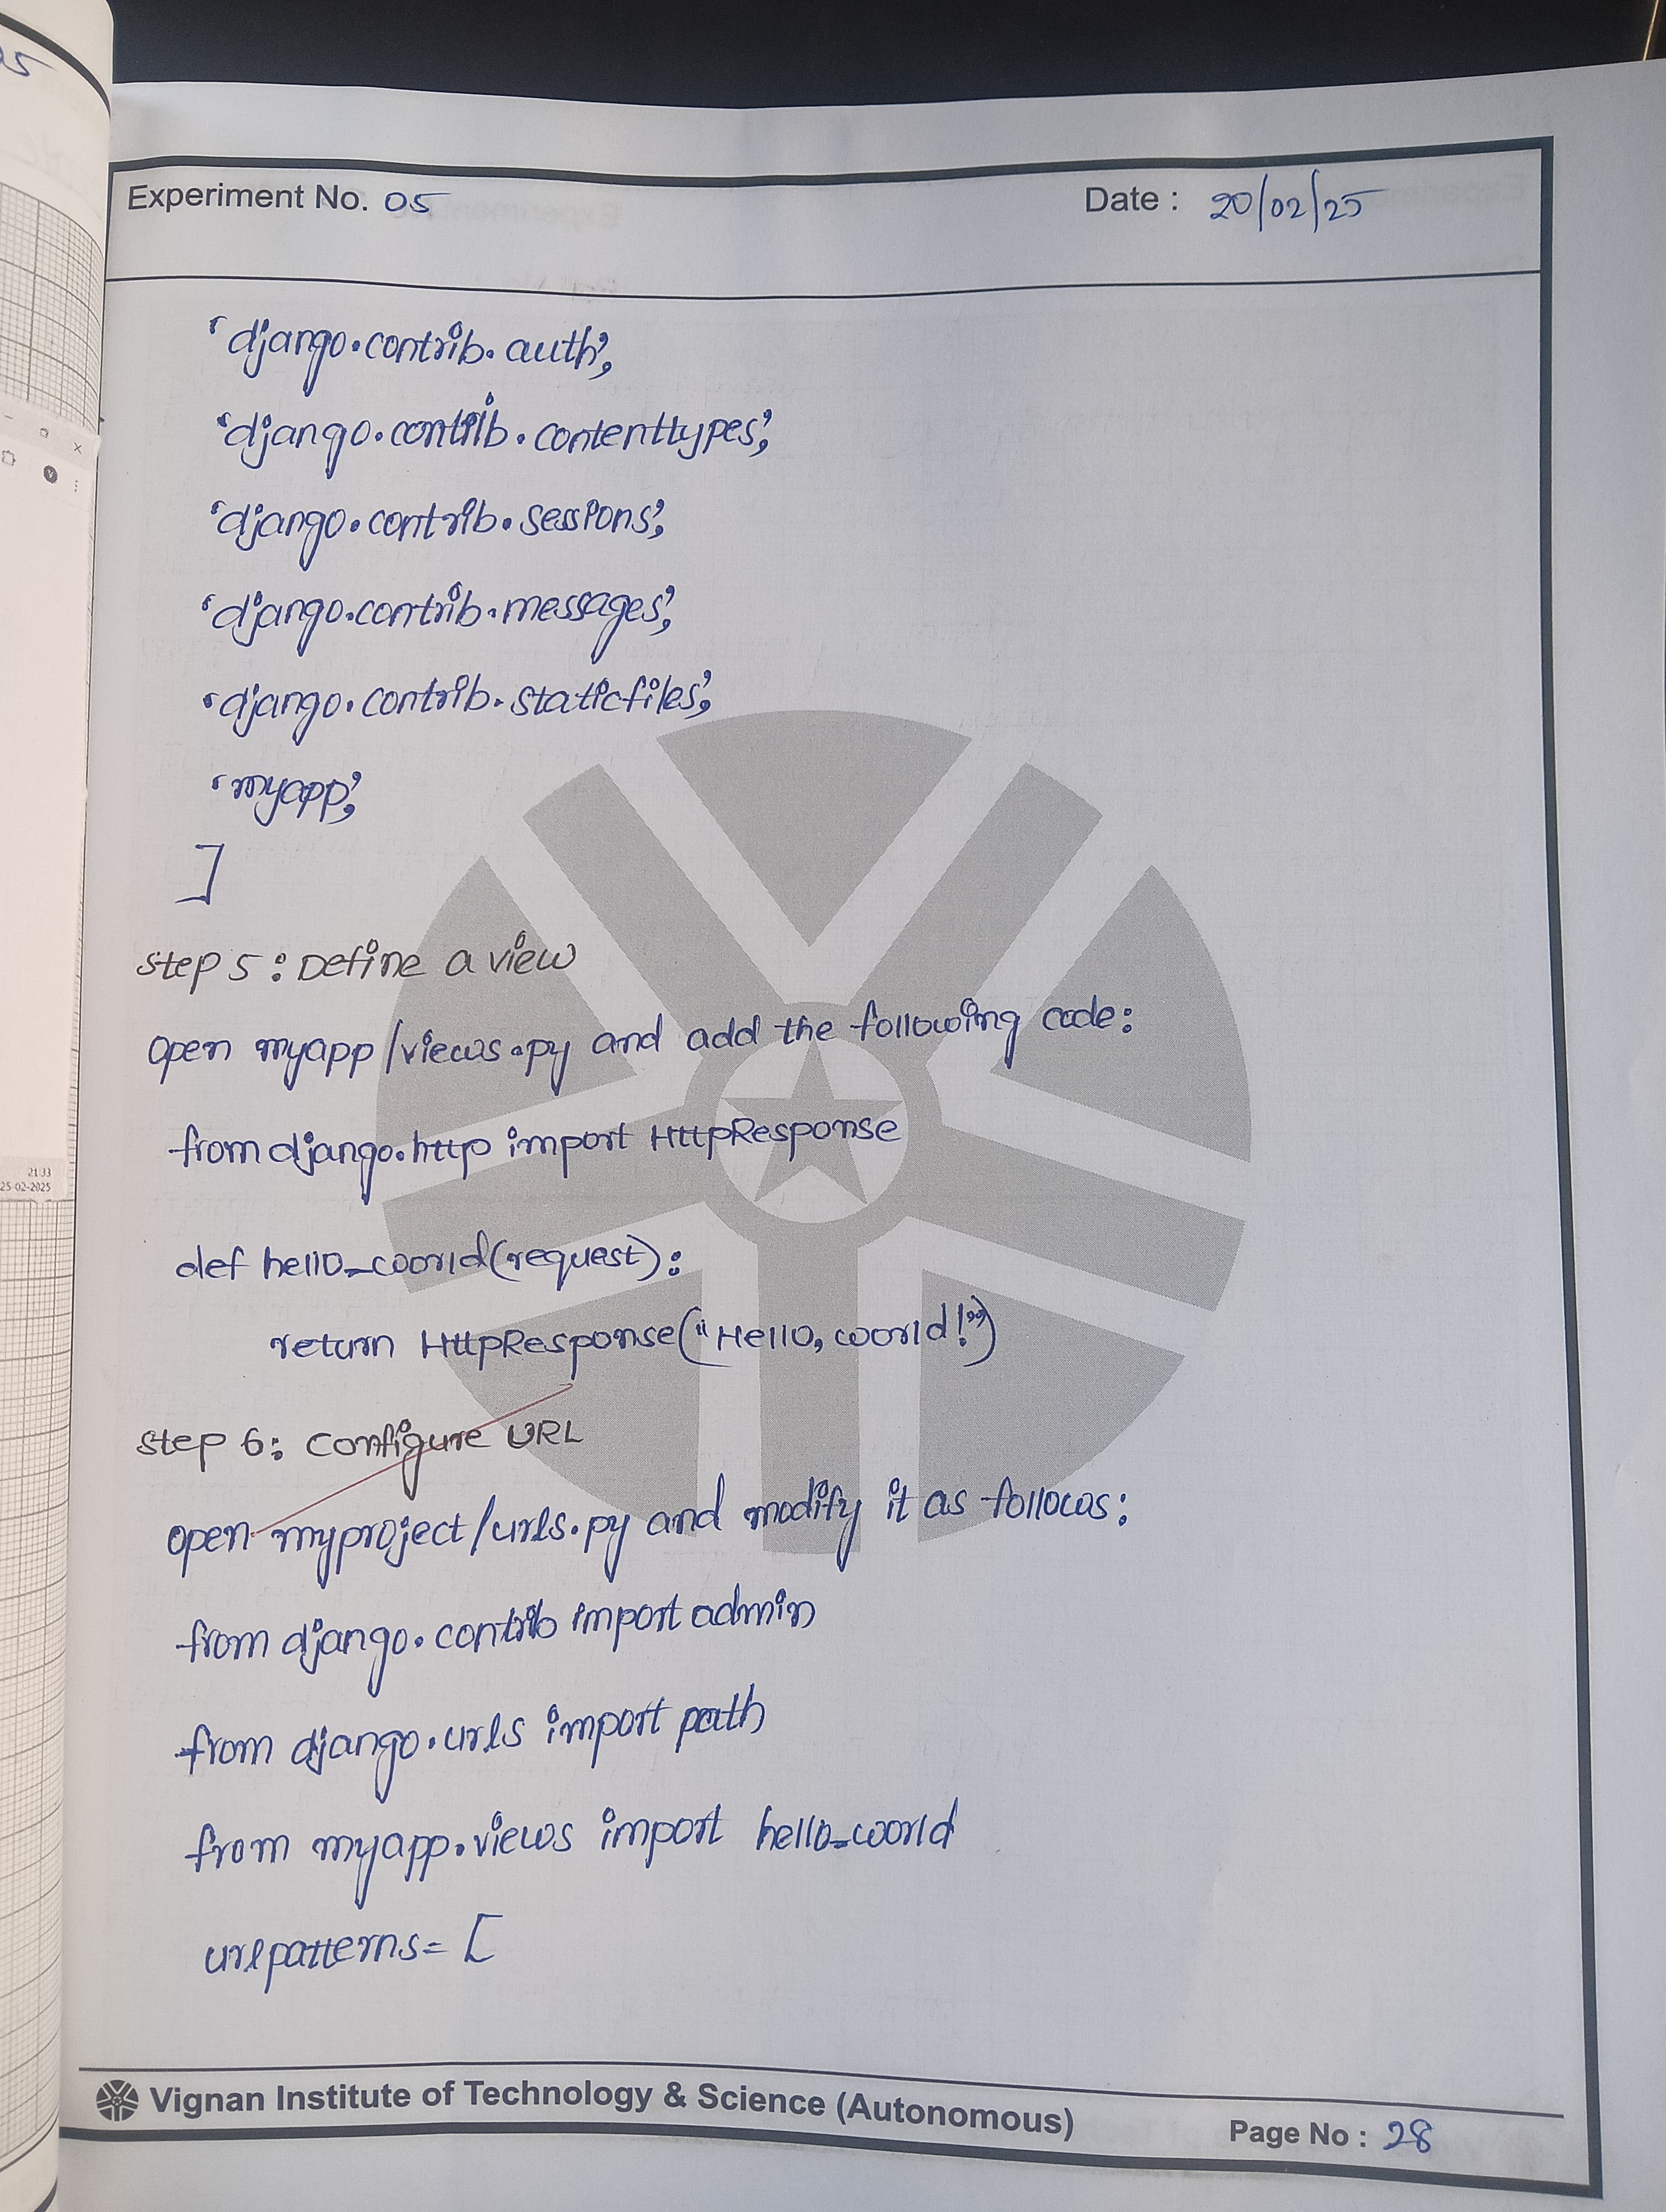 Experiment No. 05
Date : 20/02/25
'django.contrib.auth',
'django.contrib.contenttypes',
'django.contrib.sessions',
'django.contrib.messages',
'django.contrib.staticfiles',
'myapp',
]
Step 5 : Define a view
Open myapp/views.py and add the following code:
from django.http import HttpResponse
def hello_world(request):
return HttpResponse("Hello, world!")
Step 6: Configure URL
Open myproject/urls.py and modify it as follows:
from django.contrib import admin
from django.urls import path
from myapp.views import hello_world
urlpatterns = [
Vignan Institute of Technology & Science (Autonomous)
Page No : 28
21:33
25-02-2025